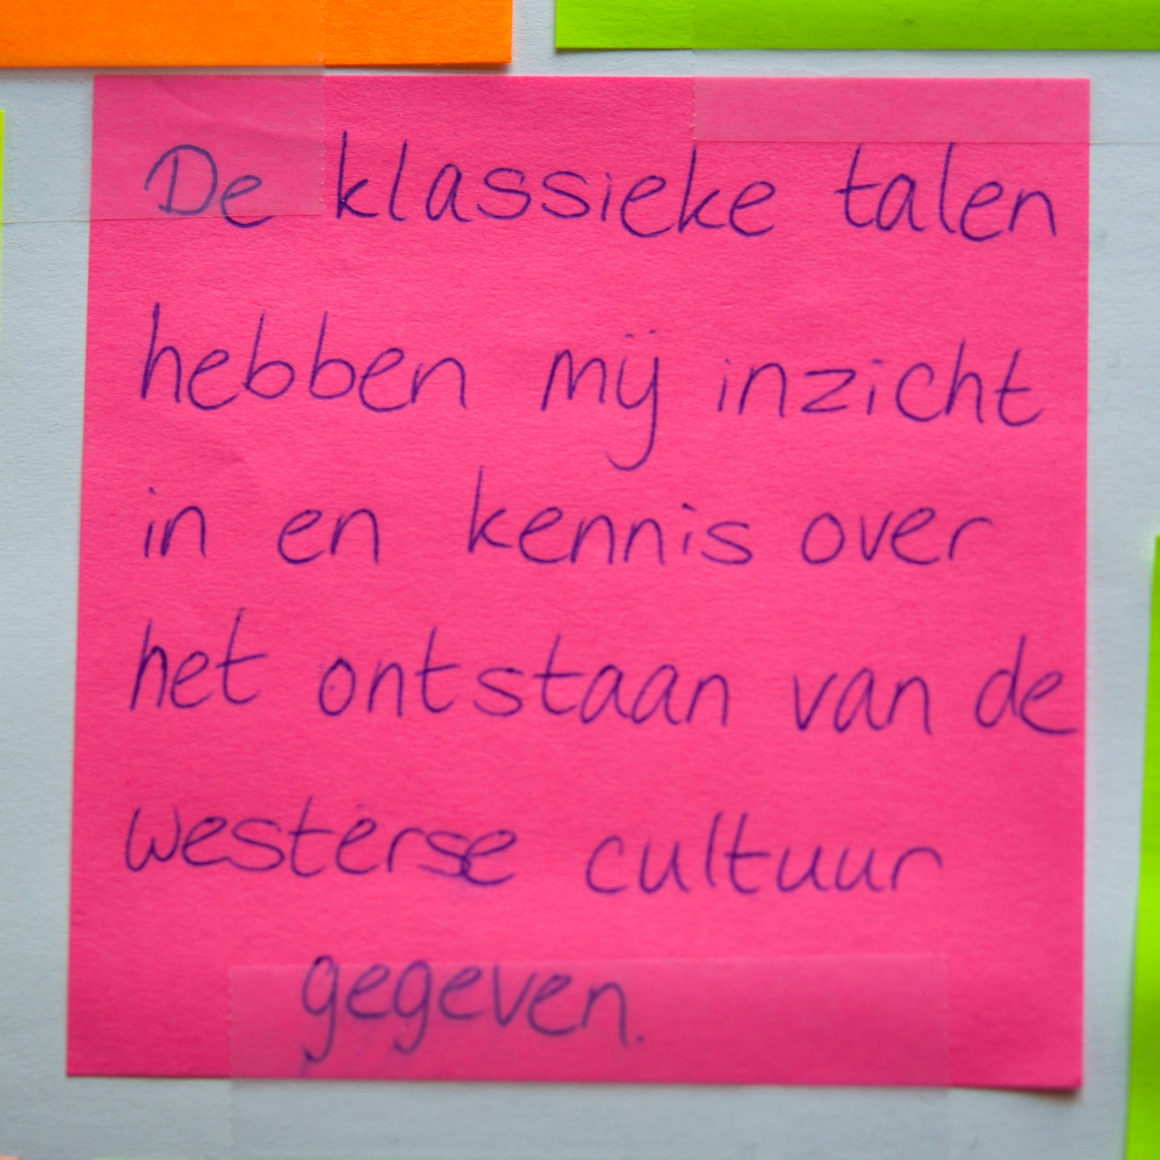 De klassieke talen
hebben mij inzicht
in en kennis over
het ontstaan van de
westerse cultuur
gegeven.